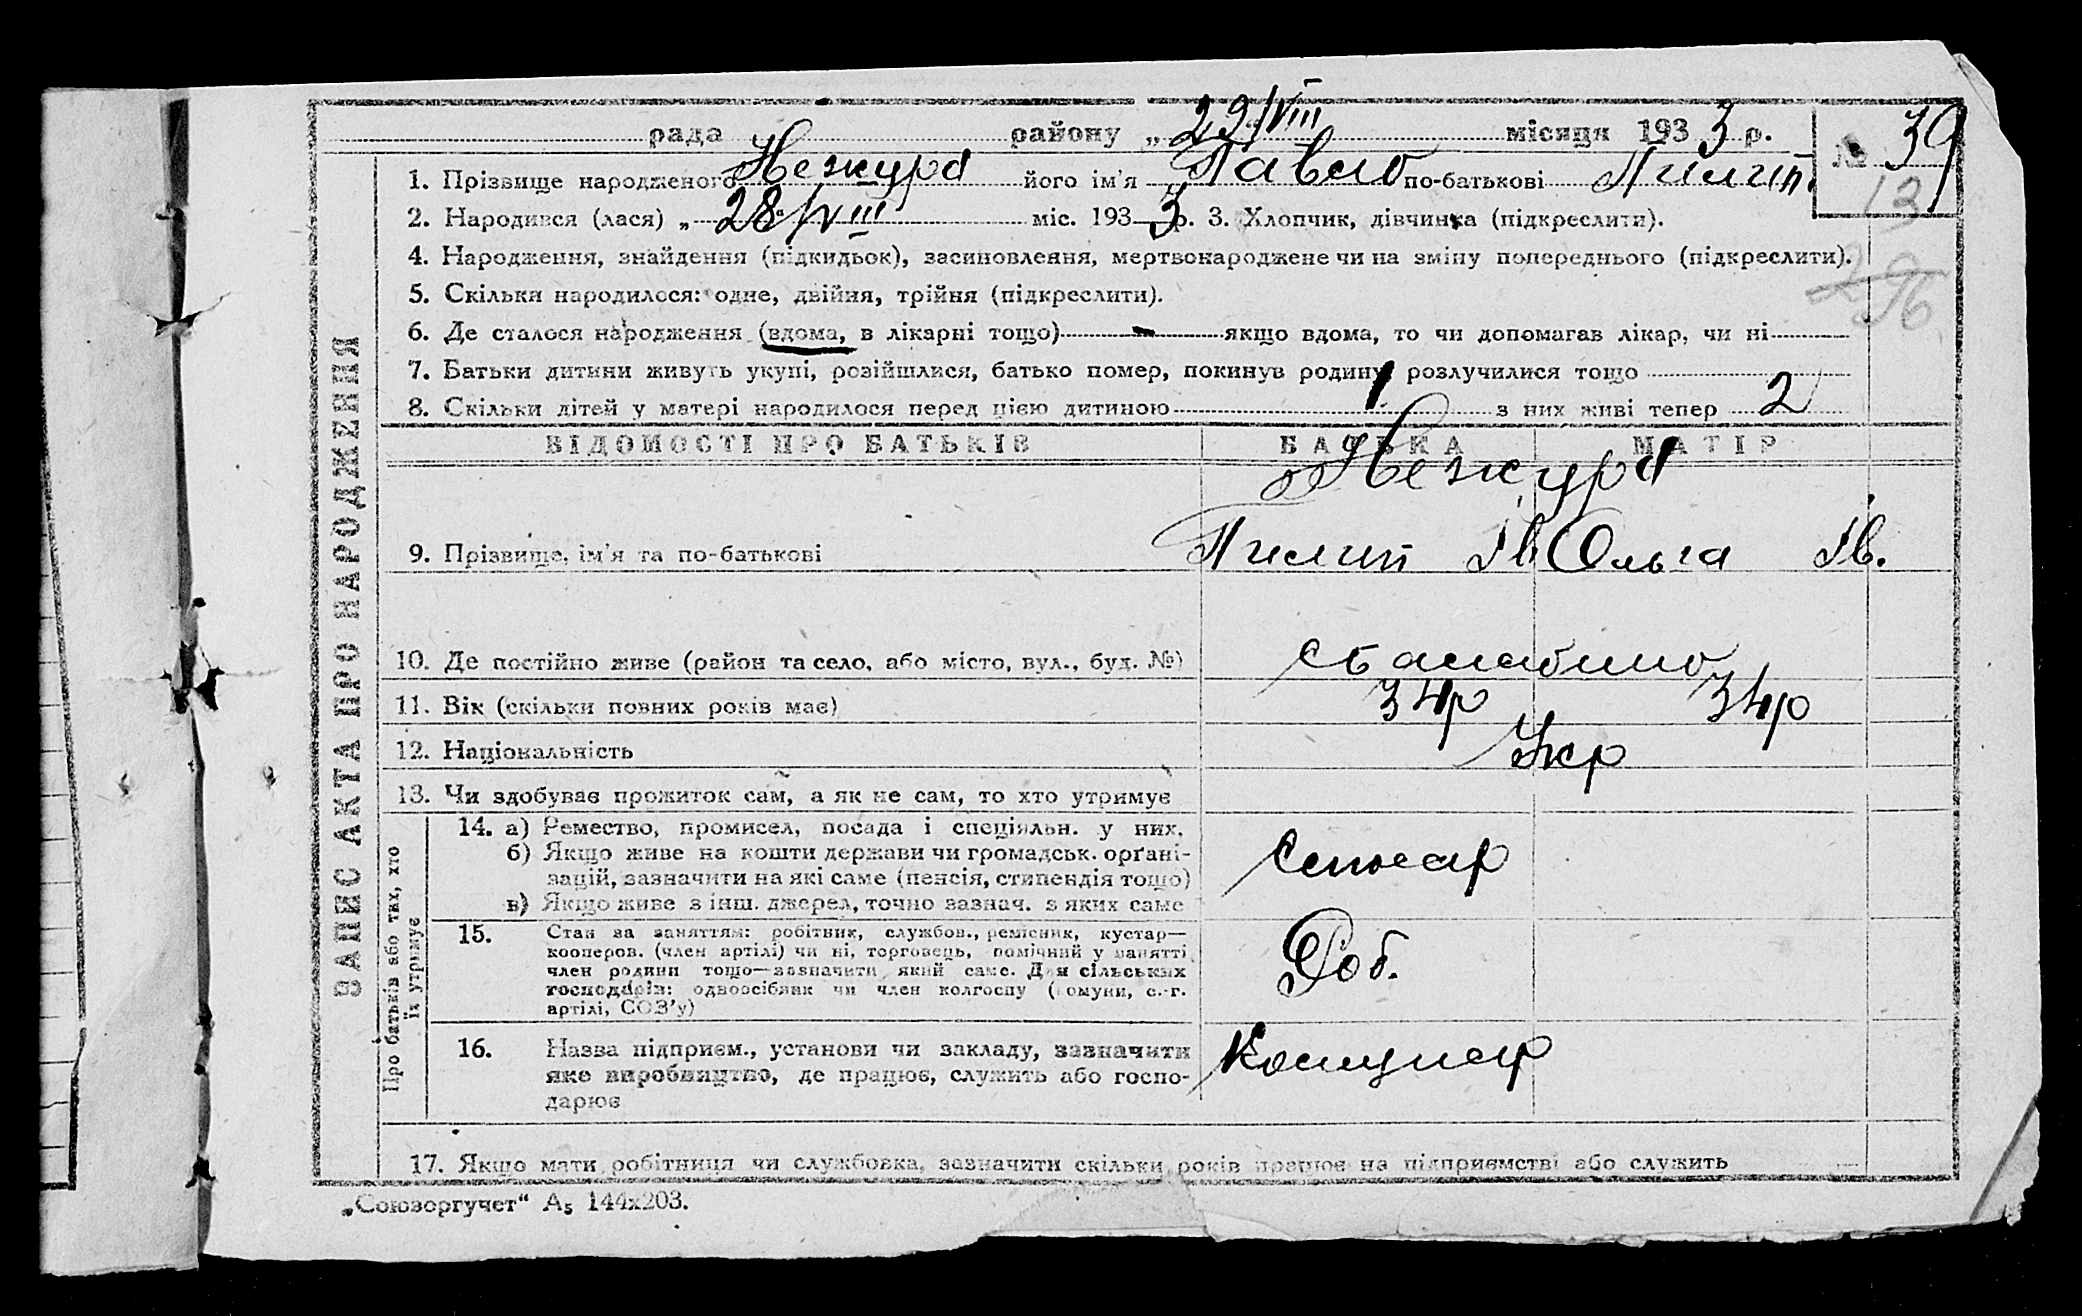 рада району „ 29/VIII місяця 193 3 р. № 39
1. Прізвище народженого Нежура його ім'я Павло по-батькові Пилип.
13
2. Народився (лася) „ 28/VIII міс. 193 3 р. 3. Хлопчик, дівчинка (підкреслити).
4. Народження, знайдення (підкидьок), засиновлення, мертвонароджене чи на зміну попереднього (підкреслити).
5. Скільки народилося: одне, двійня, трійня (підкреслити).
6. Де сталося народження (вдома, в лікарні тощо) — якщо вдома, то чи допомагав лікар, чи ні
7. Батьки дитини живуть укупі, розійшлися, батько помер, покинув родину, розлучилися тощо
8. Скільки дітей у матері народилося перед цією дитиною 1 з них живі тепер 2
ВІДОМОСТІ ПРО БАТЬКІВ БАТЬКА МАТІР
Нежура
9. Прізвище, ім'я та по-батькові Пилип Ів Ольга Ів.
10. Де постійно живе (район та село, або місто, вул., буд. №)
11. Вік (скільки повних років має) 34р 34р
12. Національність Укр
13. Чи здобуває прожиток сам, а як не сам, то хто утримує
14. а) Ремество, промисел, посада і спеціяльн. у них.
б) Якщо живе на кошти держави чи громадськ. орґані-
зацій, зазначити на які саме (пенсія, стипендія тощо)
в) Якщо живе з інш. джерел, точно зазнач. з яких саме
Слюсар
15. Стан за заняттям: робітник, службов., ремісник, кустар—
кооперов. (член артілі) чи ні, торговець, помічний у занятті
член родини тощо—зазначити який саме. Для сільських
господарів: одноосібник чи член колгоспу (комуни, с.-г.
артілі, СОЗ'у)
Роб.
16. Назва підприєм., установи чи закладу, зазначити
яке виробництво, де працює, служить або госпо-
дарює
17. Якщо мати робітниця чи службовка, зазначити скільки років працює на підприємстві або служить
ЗАПИС АКТА ПРО НАРОДЖЕННЯ
Про батьків або тих, хто
їх утримує
„Союзоргучет“ А₅ 144х203.